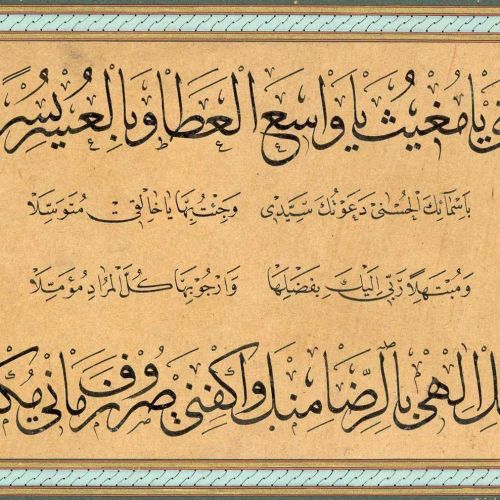 ويا مغيث يا واسع العطا وبالعسر يسر
بِاَسْمَائِكَ الْحُسْنٰى دَعَوْتُكَ سَيِّدِى وَجِئْتُ بِهَا يَا خَالِقِى مُتَوَسِّلًا
وَمُبْتَهِلًا رَبِّى اِلَيْكَ بِفَضْلِهَا وَاَرْجُو بِهَا كُلَّ الْمُرَادِ مُؤَمِّلًا
الهى بالرضا منك واكفنى صروف زمانى